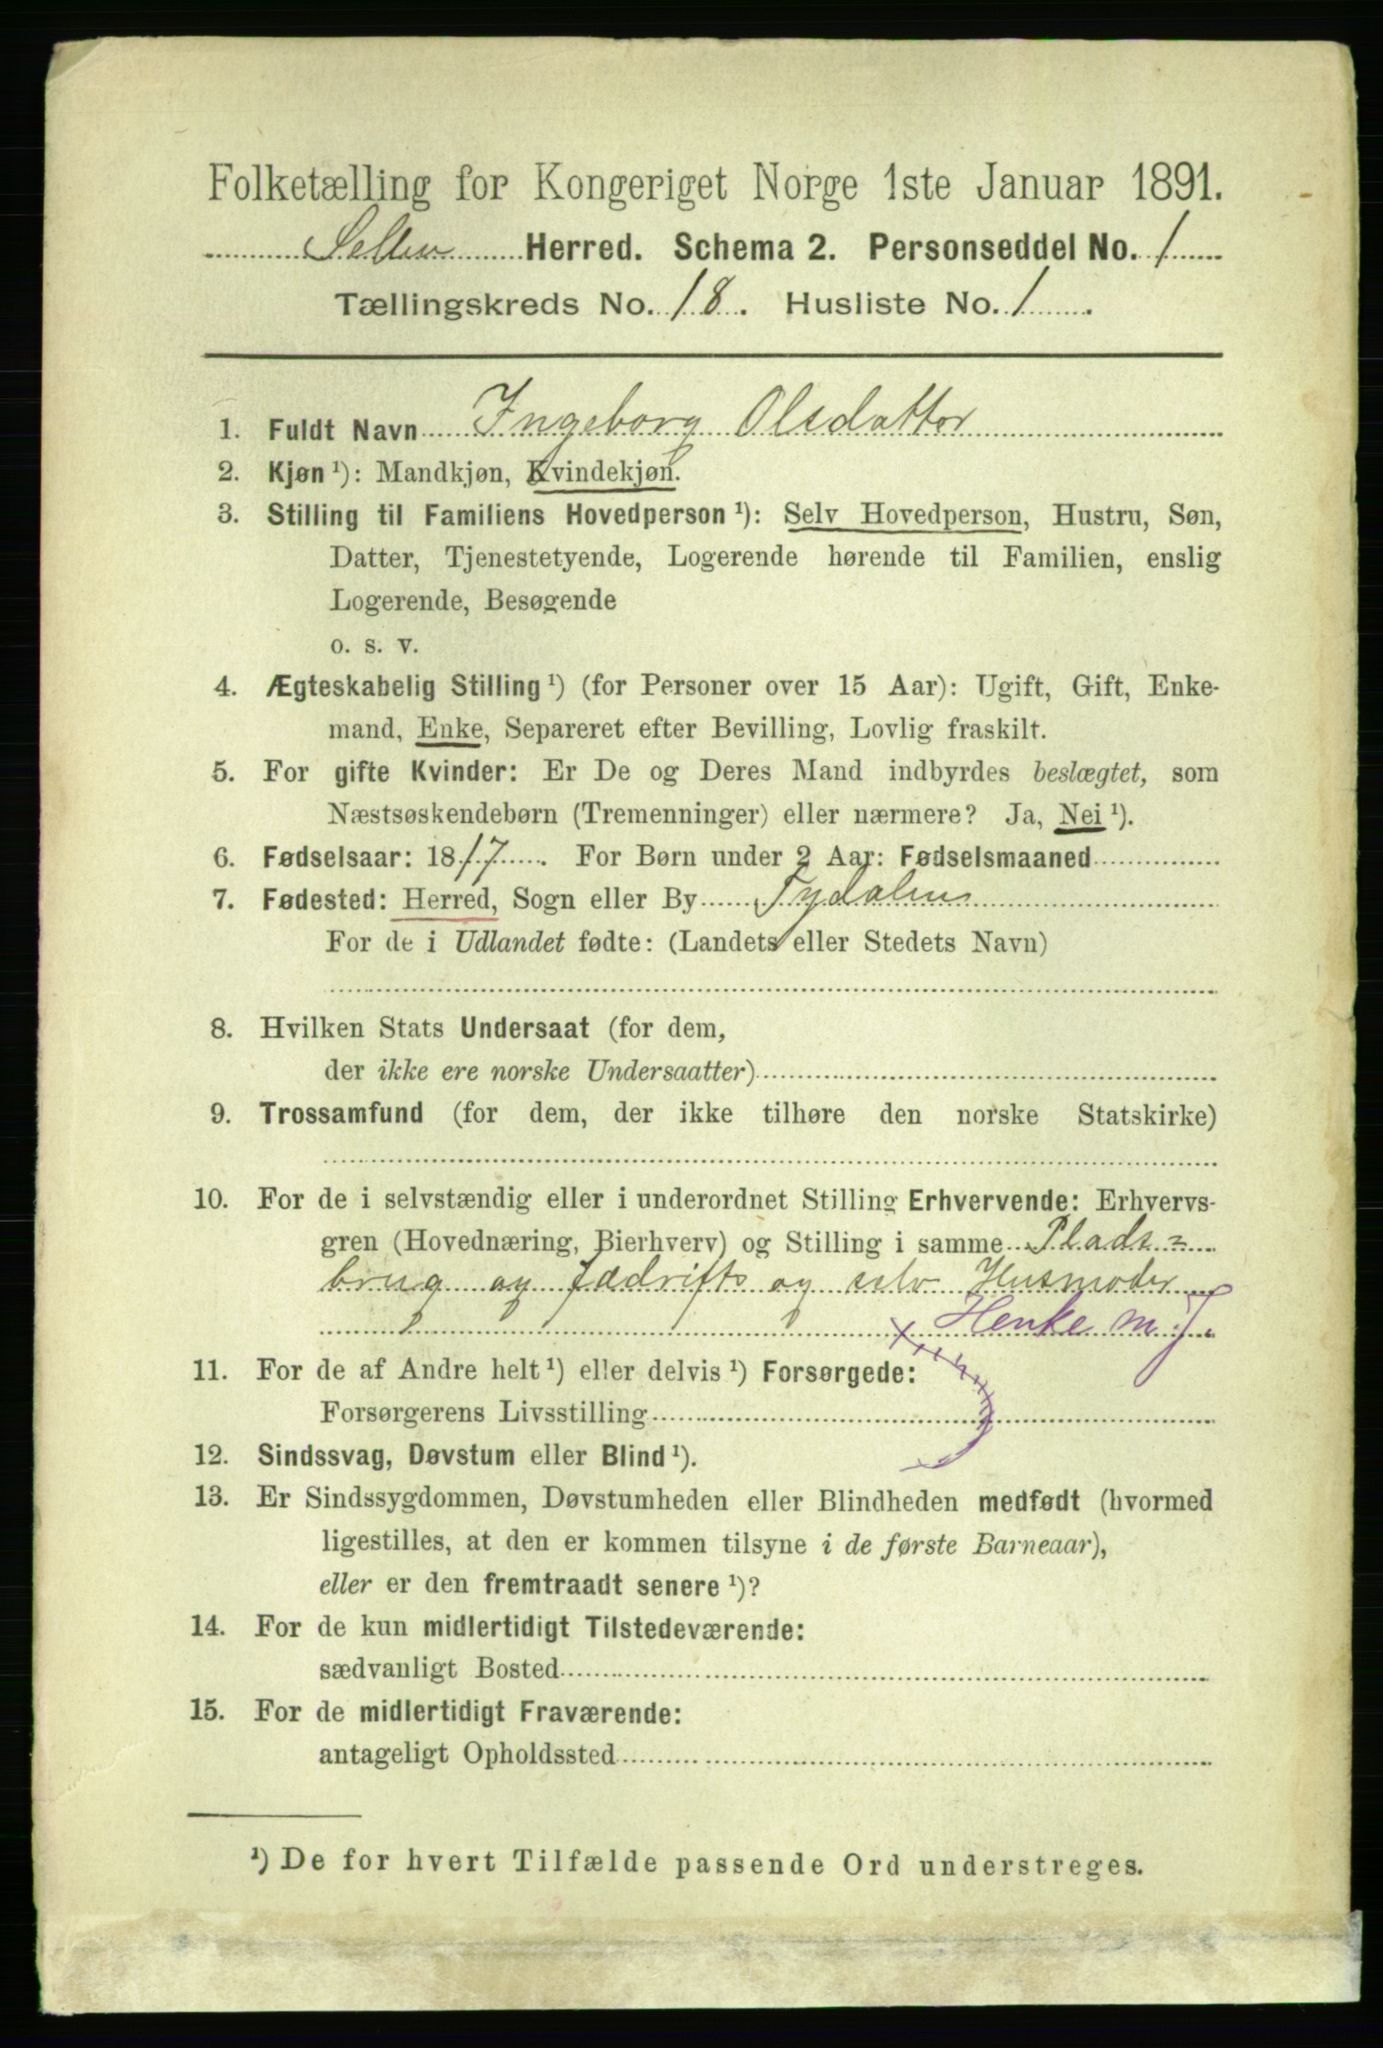 Folketælling for Kongeriget Norge 1ste Januar 1891.
Selbu Herred. Schema 2. Personseddel No. 1
Tællingskreds No. 18. Husliste No. 1.
1. Fuldt Navn Ingeborg Olsdatter
2. Kjøn ¹): Mandkjøn, Kvindekjøn.
3. Stilling til Familiens Hovedperson ¹): Selv Hovedperson, Hustru, Søn,
Datter, Tjenestetyende, Logerende hørende til Familien, enslig
Logerende, Besøgende
o. s. v.
4. Ægteskabelig Stilling ¹) (for Personer over 15 Aar): Ugift, Gift, Enke-
mand, Enke, Separeret efter Bevilling, Lovlig fraskilt.
5. For gifte Kvinder: Er De og Deres Mand indbyrdes beslægtet, som
Næstsøskendebørn (Tremenninger) eller nærmere? Ja, Nei ¹).
6. Fødselsaar: 1817. For Børn under 2 Aar: Fødselsmaaned
7. Fødested: Herred, Sogn eller By Tydalen
For de i Udlandet fødte: (Landets eller Stedets Navn)
8. Hvilken Stats Undersaat (for dem,
der ikke ere norske Undersaatter)
9. Trossamfund (for dem, der ikke tilhøre den norske Statskirke)
10. For de i selvstændig eller i underordnet Stilling Erhvervende: Erhvervs-
gren (Hovednæring, Bierhverv) og Stilling i samme Plads=
brug og fædrifts og selv Husmoder
Henke m J.
11. For de af Andre helt ¹) eller delvis ¹) Forsørgede:
Forsørgerens Livsstilling
12. Sindssvag, Døvstum eller Blind ¹).
13. Er Sindssygdommen, Døvstumheden eller Blindheden medfødt (hvormed
ligestilles, at den er kommen tilsyne i de første Barneaar),
eller er den fremtraadt senere ¹)?
14. For de kun midlertidigt Tilstedeværende:
sædvanligt Bosted
15. For de midlertidigt Fraværende:
antageligt Opholdssted
¹) De for hvert Tilfælde passende Ord understreges.